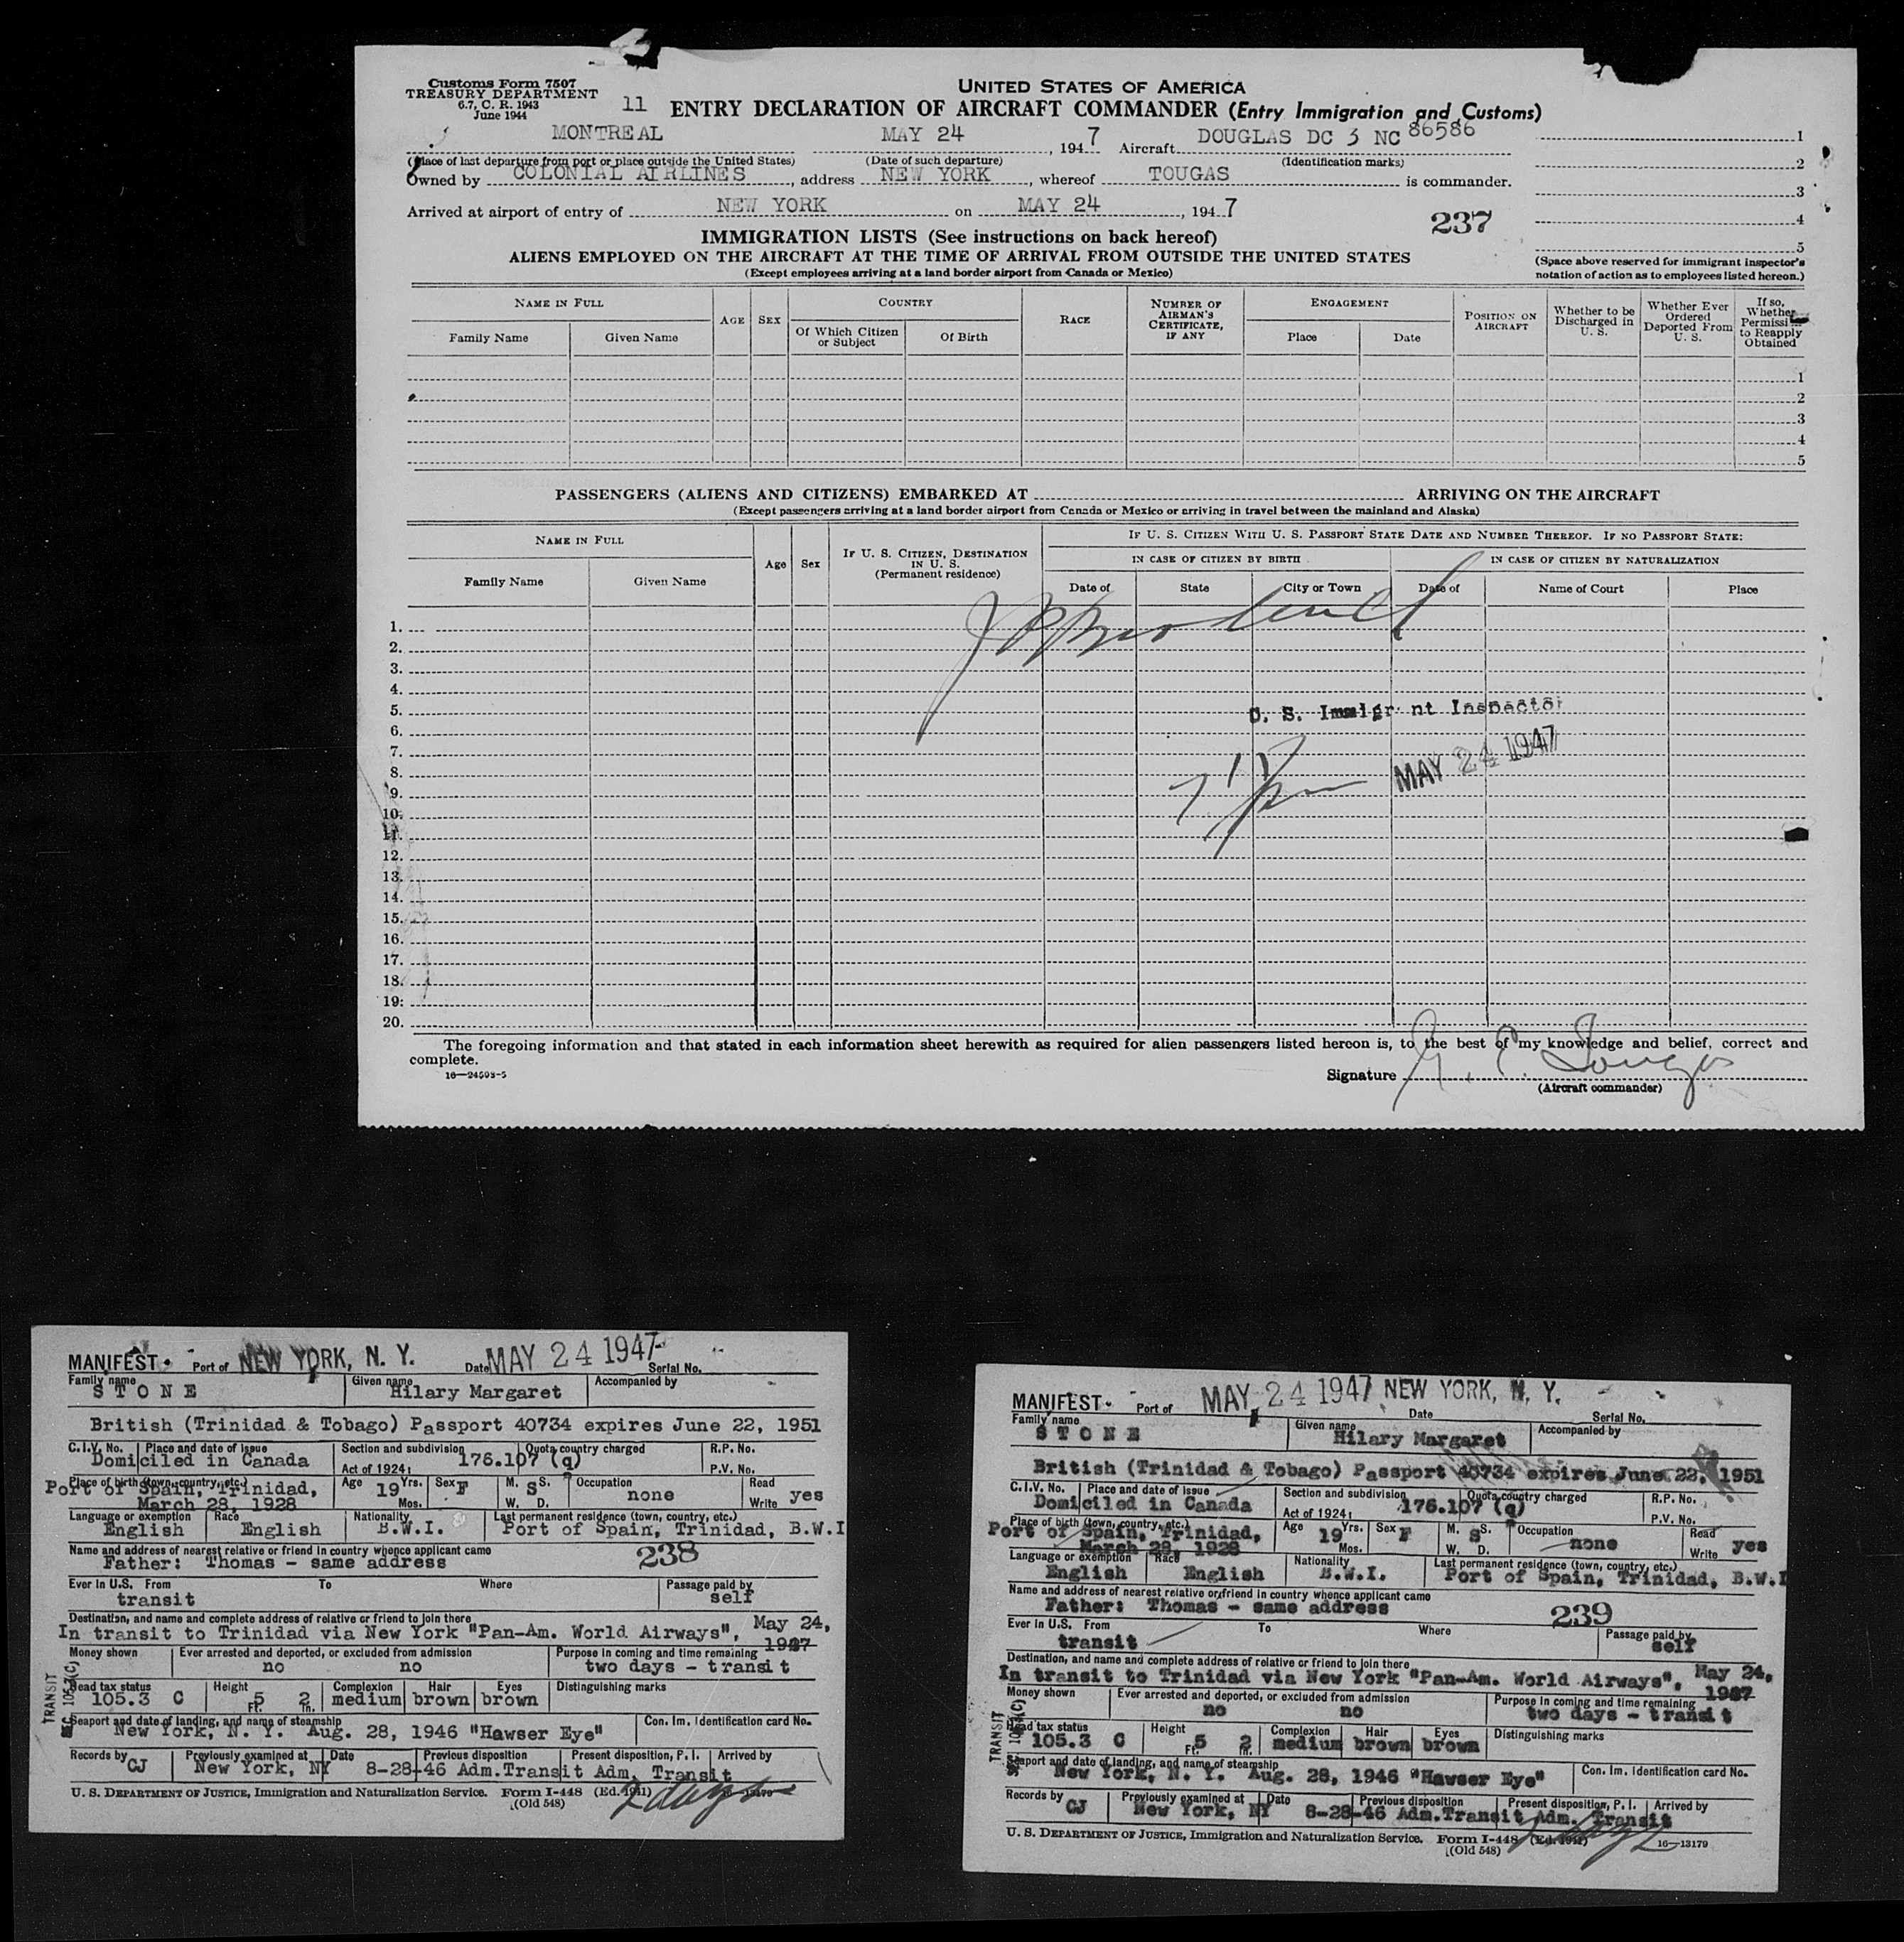 Customs Form 7507
TREASURY DEPARTMENT
6.7, C. R. 1943
June 1944
11
UNITED STATES OF AMERICA
ENTRY DECLARATION OF AIRCRAFT COMMANDER (Entry Immigration and Customs)
MONTREAL MAY 24, 1947 Aircraft DOUGLAS DC 3 NC 86586
(Place of last departure from port or place outside the United States) (Date of such departure) (Identification marks)
Owned by COLONIAL AIRLINES, address NEW YORK, whereof TOUGAS is commander.
Arrived at airport of entry of NEW YORK on MAY 24, 1947
237
1
2
3
4
5
(Space above reserved for immigrant inspector's
notation of action as to employees listed hereon.)
IMMIGRATION LISTS (See instructions on back hereof)
ALIENS EMPLOYED ON THE AIRCRAFT AT THE TIME OF ARRIVAL FROM OUTSIDE THE UNITED STATES
(Except employees arriving at a land border airport from Canada or Mexico)
NAME IN FULL
Family Name Given Name
AGE SEX
COUNTRY
Of Which Citizen or Subject
Of Birth
RACE
NUMBER OF AIRMAN'S CERTIFICATE, IF ANY
ENGAGEMENT
Place Date
POSITION ON AIRCRAFT
Whether to be Discharged in U. S.
Whether Ever Ordered Deported From U. S.
If so, Whether to Reapply Obtained
1
2
3
4
5
PASSENGERS (ALIENS AND CITIZENS) EMBARKED AT ARRIVING ON THE AIRCRAFT
(Except passengers arriving at a land border airport from Canada or Mexico or arriving in travel between the mainland and Alaska)
NAME IN FULL
Family Name Given Name
Age Sex
IF U. S. CITIZEN, DESTINATION IN U. S.
(Permanent residence)
IF U. S. CITIZEN WITH U. S. PASSPORT STATE DATE AND NUMBER THEREOF. IF NO PASSPORT STATE:
IN CASE OF CITIZEN BY BIRTH IN CASE OF CITIZEN BY NATURALIZATION
Date of State City or Town Date of Name of Court Place
1.
2.
3.
4.
5.
6.
7.
8.
9.
10.
11.
12.
13.
14.
15.
16.
17.
18.
19.
20.
U. S. Immigr nt Inspector
MAY 24 1947
The foregoing information and that stated in each information sheet herewith as required for alien passengers listed hereon is, to the best of my knowledge and belief, correct and
complete.
16—24593-5
Signature Tougas
(Aircraft commander)
MANIFEST Port of NEW YORK, N. Y. Date MAY 24 1947 Serial No.
Family name STONE Given name Hilary Margaret Accompanied by
British (Trinidad & Tobago) Passport 40734 expires June 22, 1951
C.I.V. No. Place and date of issue Section and subdivision Quota country charged R.P. No.
Domiciled in Canada Act of 1924: 176.107 (q) P.V. No.
Place of birth (town, country, etc.) Port of Spain, Trinidad, March 28, 1928
Age 19 Yrs. Mos. Sex F M. S. W. D. S Occupation none Read Write yes
Language or exemption English Race English Nationality B.W.I. Last permanent residence (town, country, etc.) Port of Spain, Trinidad, B.W.I
Name and address of nearest relative or friend in country whence applicant came
Father: Thomas - same address
238
Ever in U.S. From To Where Passage paid by
transit self
Destination, and name and complete address of relative or friend to join there
In transit to Trinidad via New York "Pan-Am. World Airways", May 24, 1947
Money shown Ever arrested and deported, or excluded from admission Purpose in coming and time remaining
no no two days - transit
TRANSIT
Head tax status 105.3 C Height 5 Ft. 2 In. Complexion medium Hair brown Eyes brown Distinguishing marks
Seaport and date of landing, and name of steamship Con. Im. Identification card No.
New York, N. Y. Aug. 28, 1946 "Hawser Eye"
Records by GJ Previously examined at New York, NY Date 8-28-46 Previous disposition Adm.Transit Present disposition, P. I. Adm. Transit Arrived by
U. S. DEPARTMENT OF JUSTICE, Immigration and Naturalization Service. Form I-448 (Ed. 1941)
(Old 548)
MANIFEST Port of MAY 24 1947 NEW YORK, N. Y. Date Serial No.
Family name STONE Given name Hilary Margaret Accompanied by
British (Trinidad & Tobago) Passport 40734 expires June 22, 1951
C.I.V. No. Place and date of issue Section and subdivision Quota country charged R.P. No.
Domiciled in Canada Act of 1924: 176.107 (q) P.V. No.
Place of birth (town, country, etc.) Port of Spain, Trinidad, March 28, 1928
Age 19 Yrs. Mos. Sex F M. S. W. D. S Occupation none Read Write yes
Language or exemption English Race English Nationality B.W.I. Last permanent residence (town, country, etc.) Port of Spain, Trinidad, B.W.I
Name and address of nearest relative or friend in country whence applicant came
Father: Thomas - same address
239
Ever in U.S. From To Where Passage paid by
transit self
Destination, and name and complete address of relative or friend to join there
In transit to Trinidad via New York "Pan-Am. World Airways", May 24, 1947
Money shown Ever arrested and deported, or excluded from admission Purpose in coming and time remaining
no no two days - transit
TRANSIT
Head tax status 105.3 C Height 5 Ft. 2 In. Complexion medium Hair brown Eyes brown Distinguishing marks
Seaport and date of landing, and name of steamship Con. Im. Identification card No.
New York, N. Y. Aug. 28, 1946 "Hawser Eye"
Records by GJ Previously examined at New York, NY Date 8-28-46 Previous disposition Adm.Transit Present disposition, P. I. Adm. Transit Arrived by
U. S. DEPARTMENT OF JUSTICE, Immigration and Naturalization Service. Form I-448 (Ed. 1941) 16—13179
(Old 548)